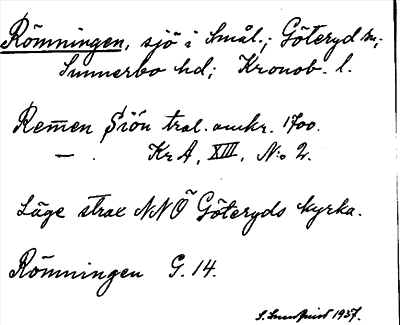 Römningen, sjö i Smål.; Göteryd sn;
Sunnerbo hd; Kronob. l.
Remen Siön tral. omkr. 1700.
— . Kr A, XIII, N:o 2.
Läge strax NNÖ Göteryds kyrka.
Römningen G. 14.
S. Sundqvist 1957.